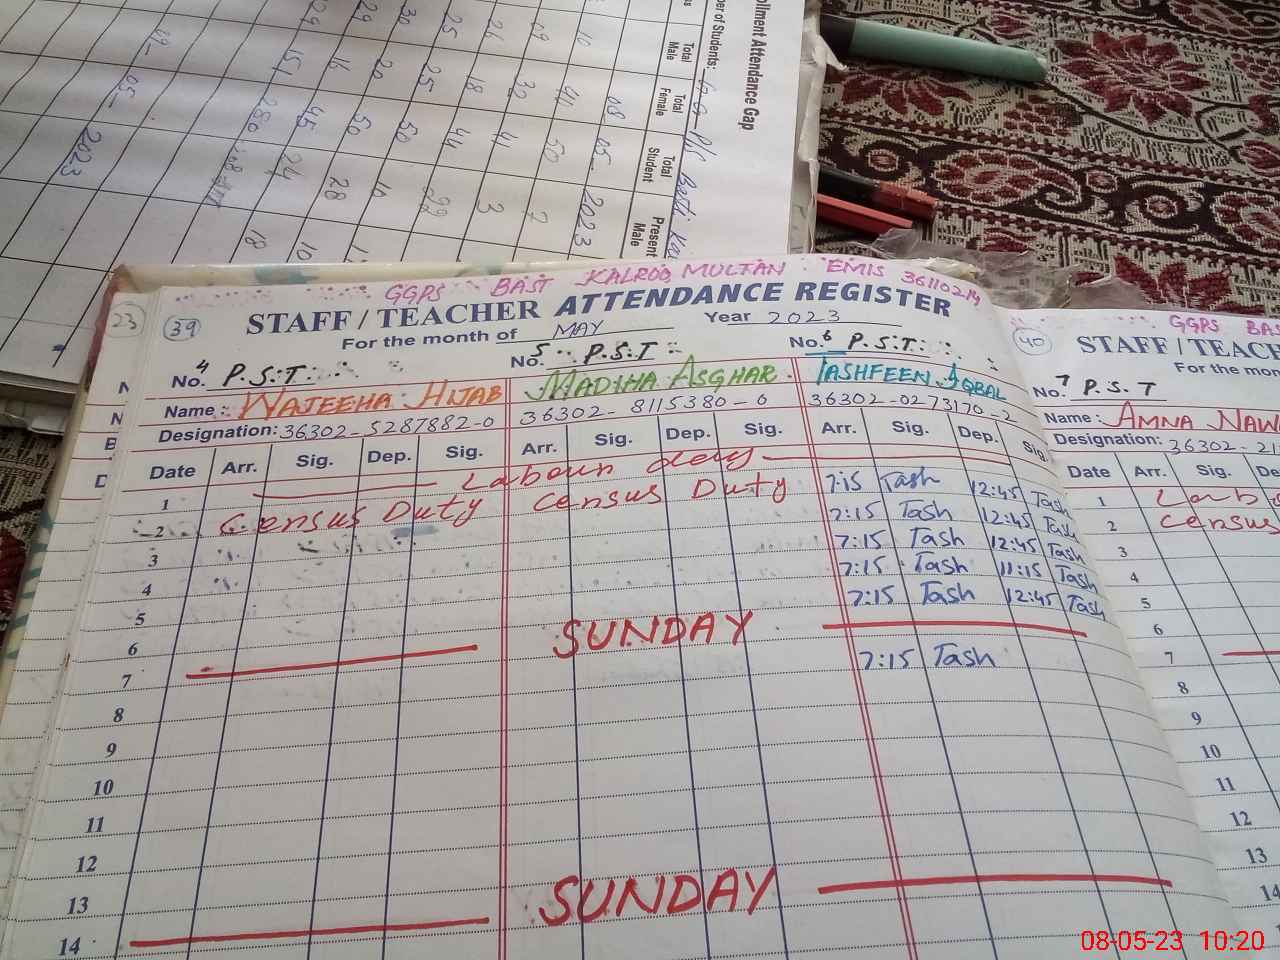 ollment Attendance Gap
ber of Students:
Total Male
Total Female
Total Student
Present Male
08 05 2023
10 40 50 7
09 32 41 3
26 18 44
25 25 50 10
30 20 50 28
29 16 45 24
151 280
19-05-2023
18
10
GGPS BAST KALROO MULTAN EMIS 36110214
23 39 STAFF / TEACHER ATTENDANCE REGISTER
For the month of MAY Year 2023
No. 4 P.S.T. No. 5 P.S.T No. 6 P.S.T.
Name: WAJEEHA HIJAB MADIHA ASGHAR TASHFEEN IQBAL
Designation: 36302-5287882-0 36302-8115380-6 36302-0273170-2
Date Arr. Sig. Dep. Sig. Arr. Sig. Dep. Sig. Arr. Sig. Dep. Sig.
1 Labour day
2 Census Duty Census Duty 7:15 Tash 12:45 Tash
3 7:15 Tash 12:45 Tash
4 7:15 Tash 12:45 Tash
5 7:15 Tash 11:15 Tash
6 7:15 Tash 12:45 Tash
7 SUNDAY
8 7:15 Tash
9
10
11
12
13
14 SUNDAY
GGPS BAS
40 STAFF / TEACH
For the mon
No. 7 P.S.T
Name: AMNA NAW
Designation: 36302-21
Date Arr. Sig. De
1 Labo
2 Census
3
4
5
6
7
8
9
10
11
12
13
14
08-05-23 10:20